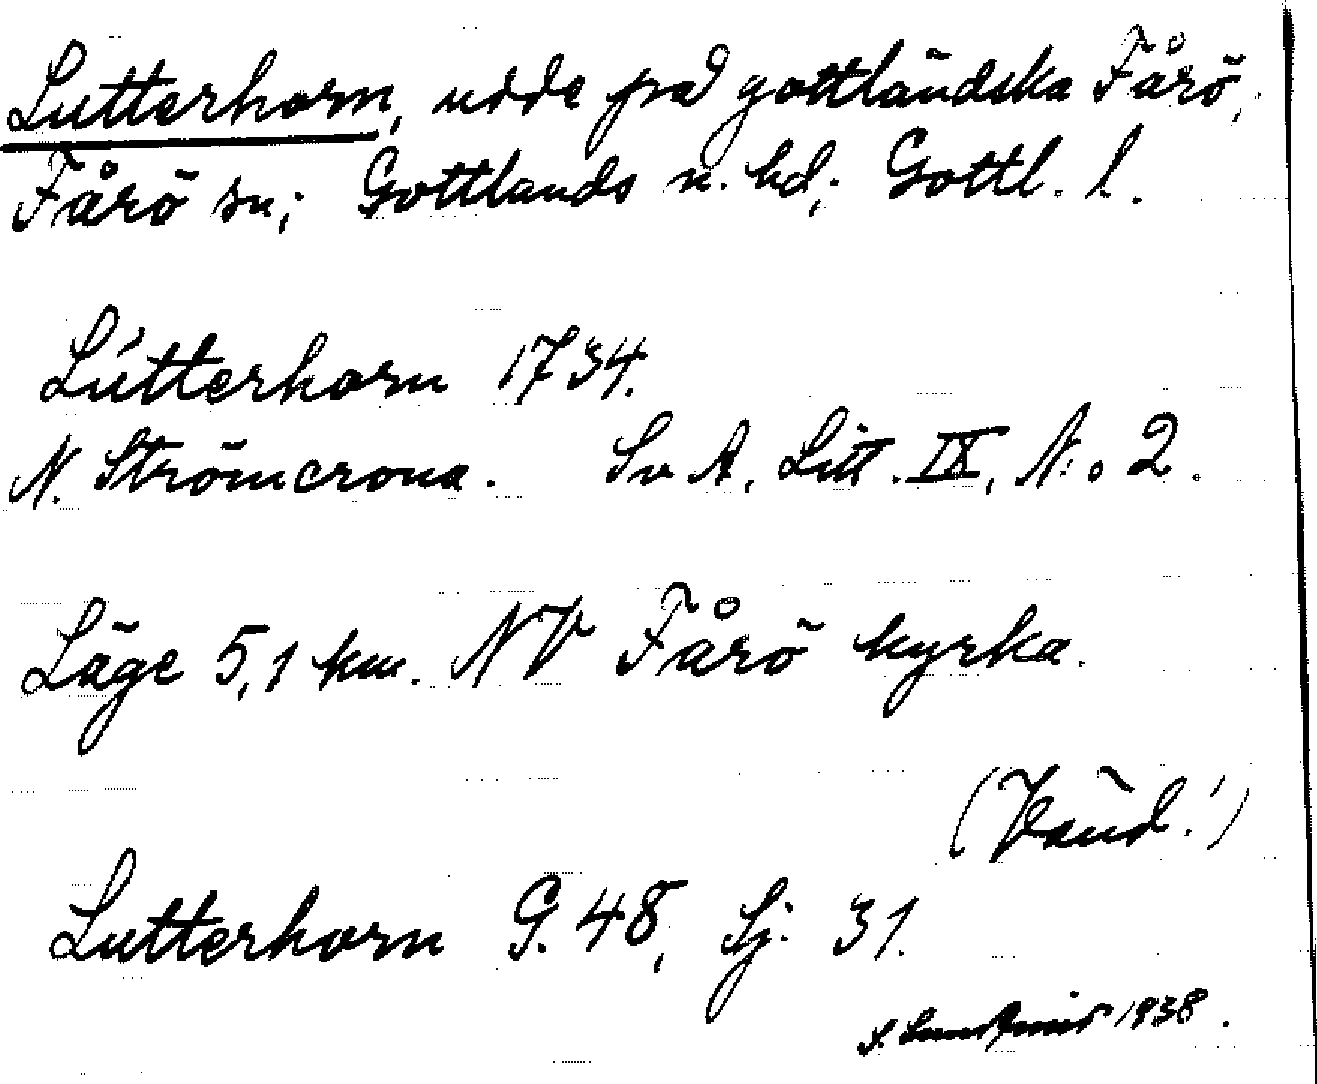 Lutterhorn, udde på gottländska Fårö,
Fårö sn; Gottlands n. hd; Gottl. l.
Lútterhorn 1734.
N. Strömcrona. Sv A, Litt. IX, N:o 2.
Läge 5,1 km. NV Fårö kyrka.
(Vänd!)
Lutterhorn G. 48, Sj: 31.
S. 1938.